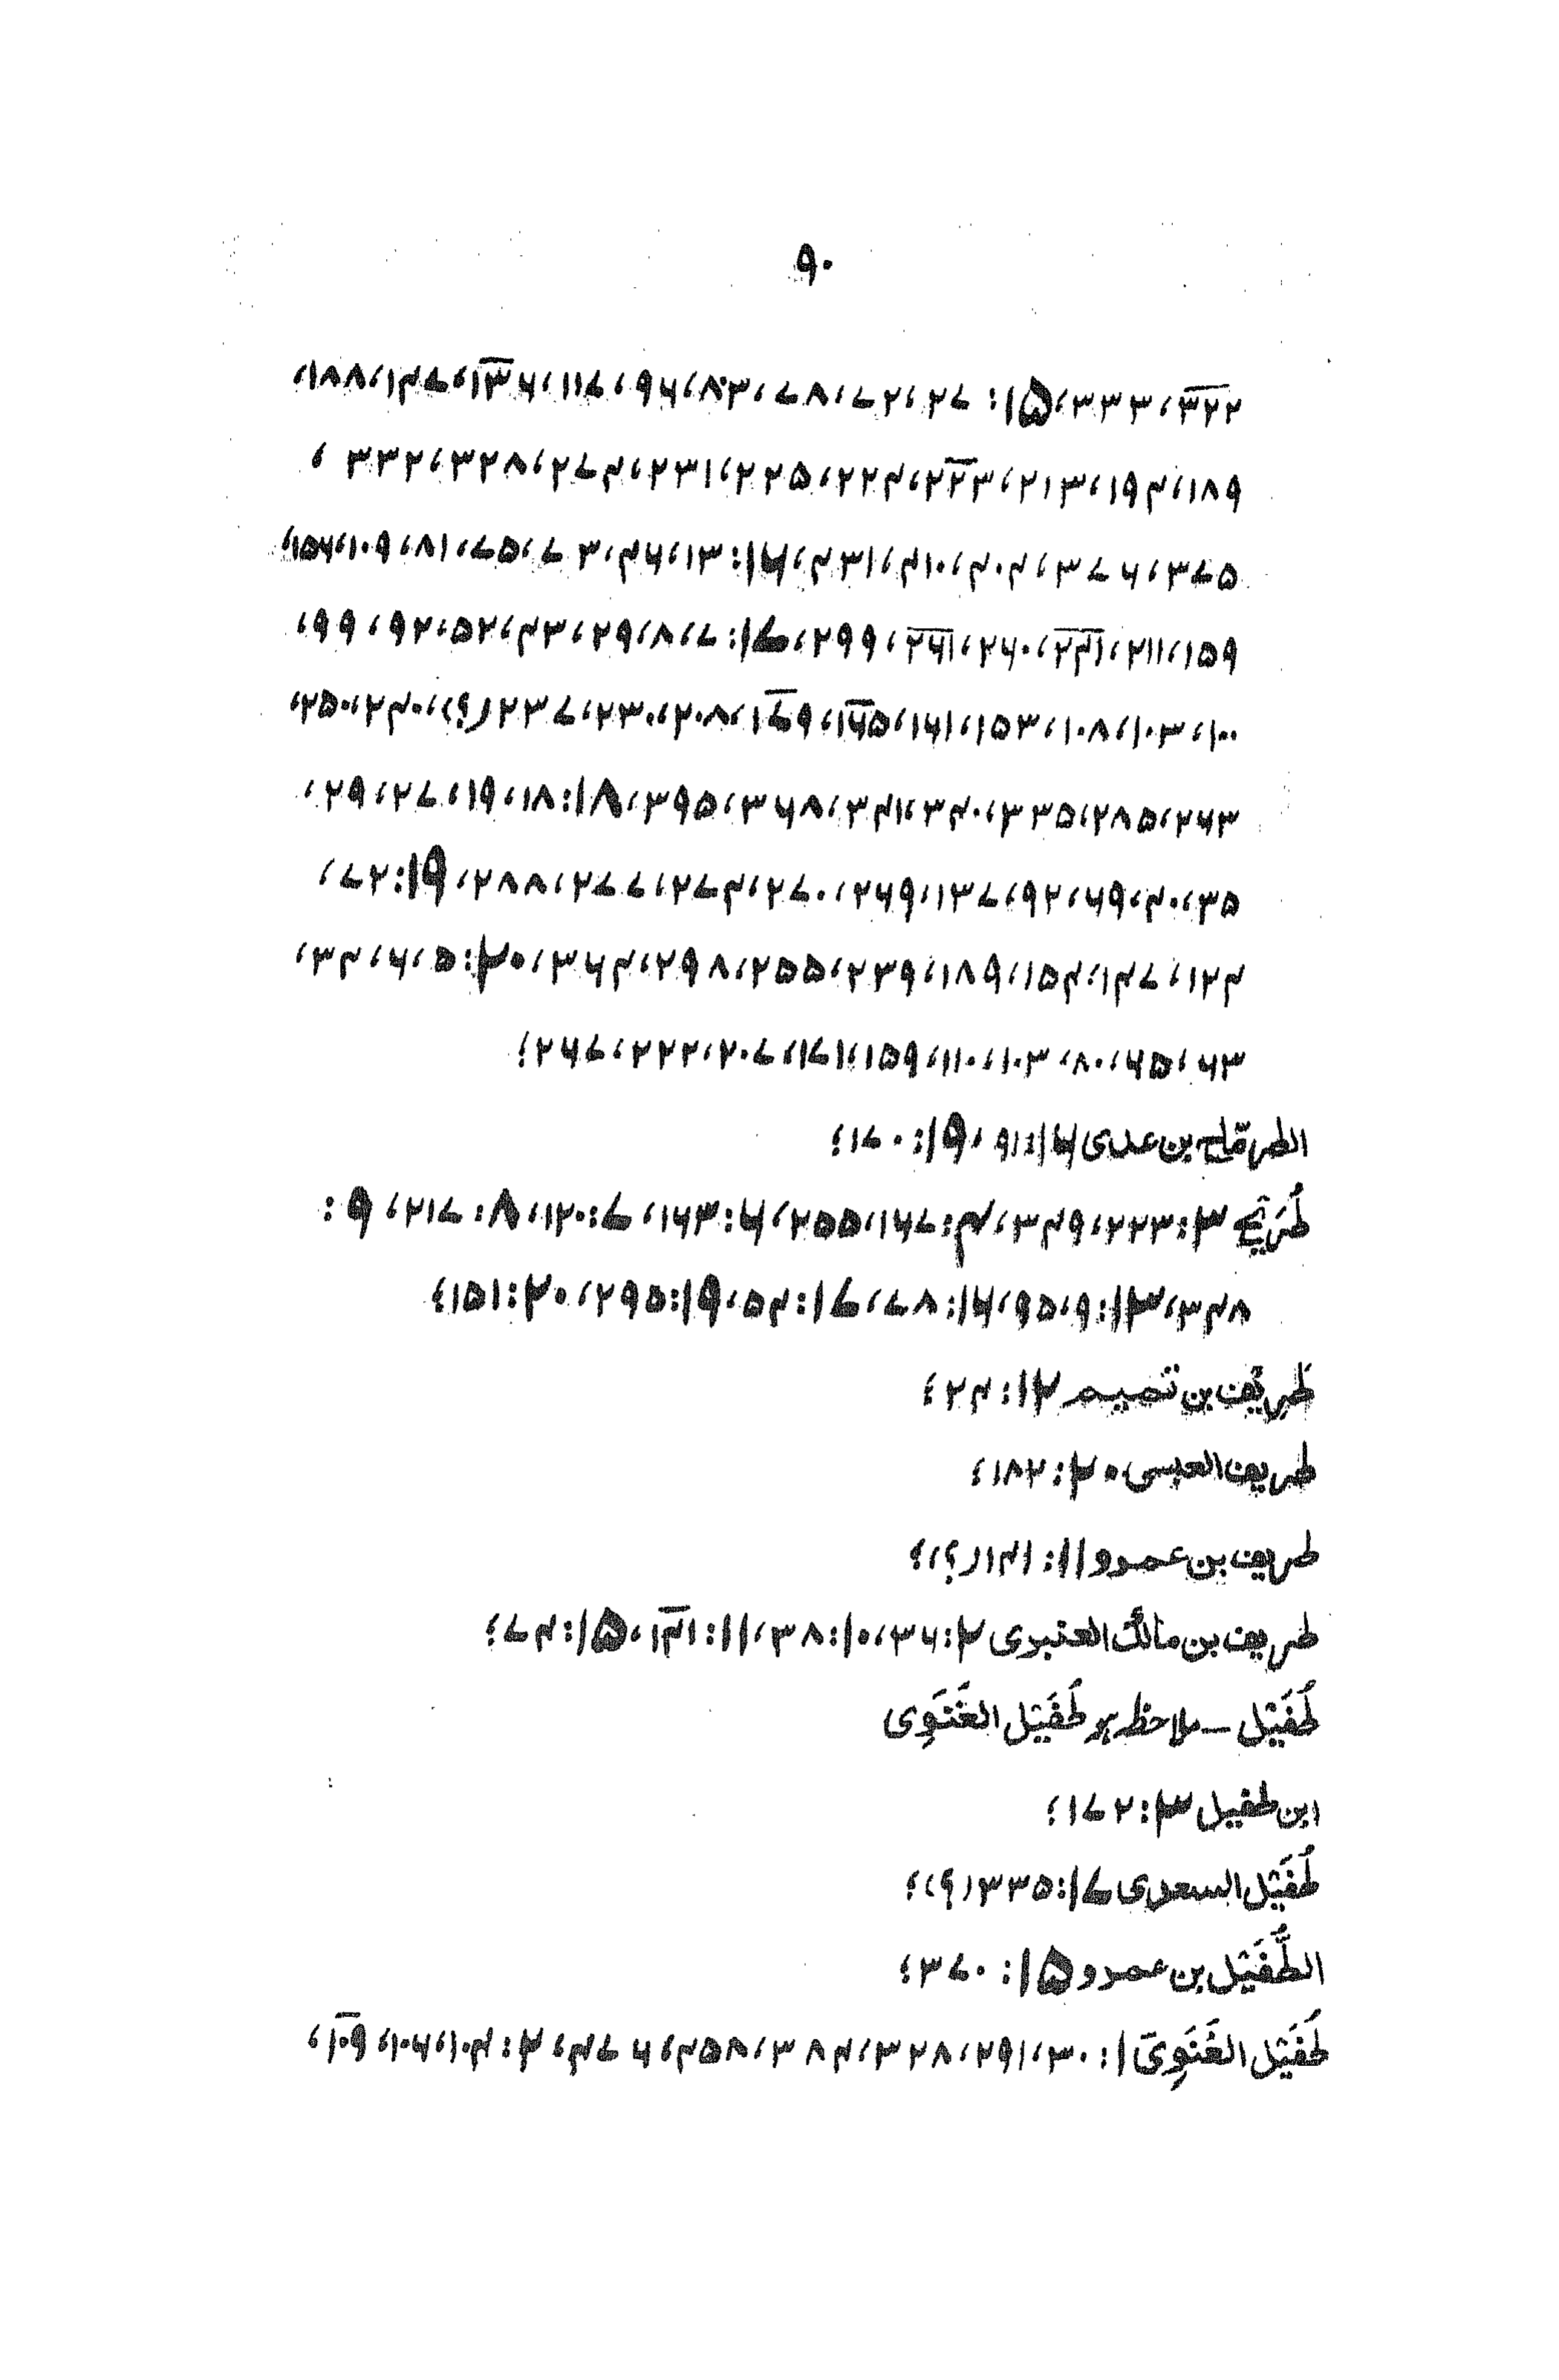 ۹۰
۳۲۲، ۳۳۳، ۱۵: ۲۷، ۷۲، ۷۸، ۸۳، ۹۶، ۱۱۷، ۱۳۶، ۱۴۷، ۱۸۸،
۱۸۹، ۱۹۴، ۲۱۳، ۲۲۳، ۲۲۴، ۲۲۵، ۲۳۱، ۲۷۴، ۳۲۸، ۳۳۲ ،
۳۷۵، ۳۷۶، ۴۰۴، ۴۱۰، ۴۳۱، ۱۶: ۱۳، ۴۶، ۳۷، ۵۷، ۸۱، ۱۰۹، ۱۵۶،
۱۵۹، ۲۱۱، ۲۴۱، ۲۶۰، ۲۶۱، ۲۹۹، ۱۷: ۷، ۸، ۲۹، ۴۳، ۵۲، ۹۲، ۹۹،
۱۰۰، ۱۰۳، ۱۰۸، ۱۵۳، ۱۶۱، ۱۶۵، ۱۷۹، ۲۰۸، ۲۳۰، ۲۳۷(؟)، ۲۴۰، ۲۵۰،
۲۶۳، ۲۸۵، ۳۳۵، ۳۴۰، ۳۴۱، ۳۶۸، ۳۹۵، ۱۸: ۱۸، ۱۹، ۲۷، ۲۹،
۳۵، ۴۰، ۶۹، ۹۲، ۱۳۷، ۲۶۹، ۲۷۰، ۲۷۴، ۲۷۷، ۲۸۸، ۱۹: ۷۲،
۱۲۴، ۱۴۷، ۱۵۴، ۱۸۹، ۲۳۹، ۲۵۵، ۲۹۸، ۳۶۴، ۲۰: ۵، ۶، ۳۴،
۶۳، ۶۵، ۸۰، ۱۰۳، ۱۱۰، ۱۵۹، ۱۷۱، ۲۰۷، ۲۲۲، ۲۶۷؛
الطرمّاح بن عدى ۱۶: ۹، ۱۹: ۱۷۰؛
طُرَيْح ۳: ۲۲۳، ۳۴۹، ۴: ۱۶۷، ۲۵۵، ۶: ۱۶۳، ۷: ۱۲۰، ۸: ۲۱۷، ۹:
۳۴۸، ۱۳: ۹، ۹۵، ۱۶: ۷۸، ۱۷: ۵۴، ۱۹: ۲۹۵، ۲۰: ۱۵۱؛
طَرِيْف بن تميم ۱۲: ۲۴؛
طريف العبسى ۲۰: ۱۸۲؛
طريف بن عمرو ۱۱: ۱۴۱(؟)؛
طريف بن مالك العنبرى ۲: ۳۶، ۱۰: ۳۸، ۱۱: ۱۴۱، ۱۵: ۷۴؛
طُفَيْل – ملاحظہ ہو طُفَيْل الغَنَوِى
ابن طفيل ۳: ۱۷۲؛
طُفَيْل السعدى ۱۷: ۳۳۵(؟)؛
الطُّفَيْل بن عمرو ۱۵: ۳۷۰؛
طُفَيْل الغَنَوِى ۱: ۳۰، ۲۹۱، ۳۲۸، ۳۸۴، ۴۵۸، ۴۷۶، ۲: ۱۰۴، ۱۰۶، ۱۰۹،